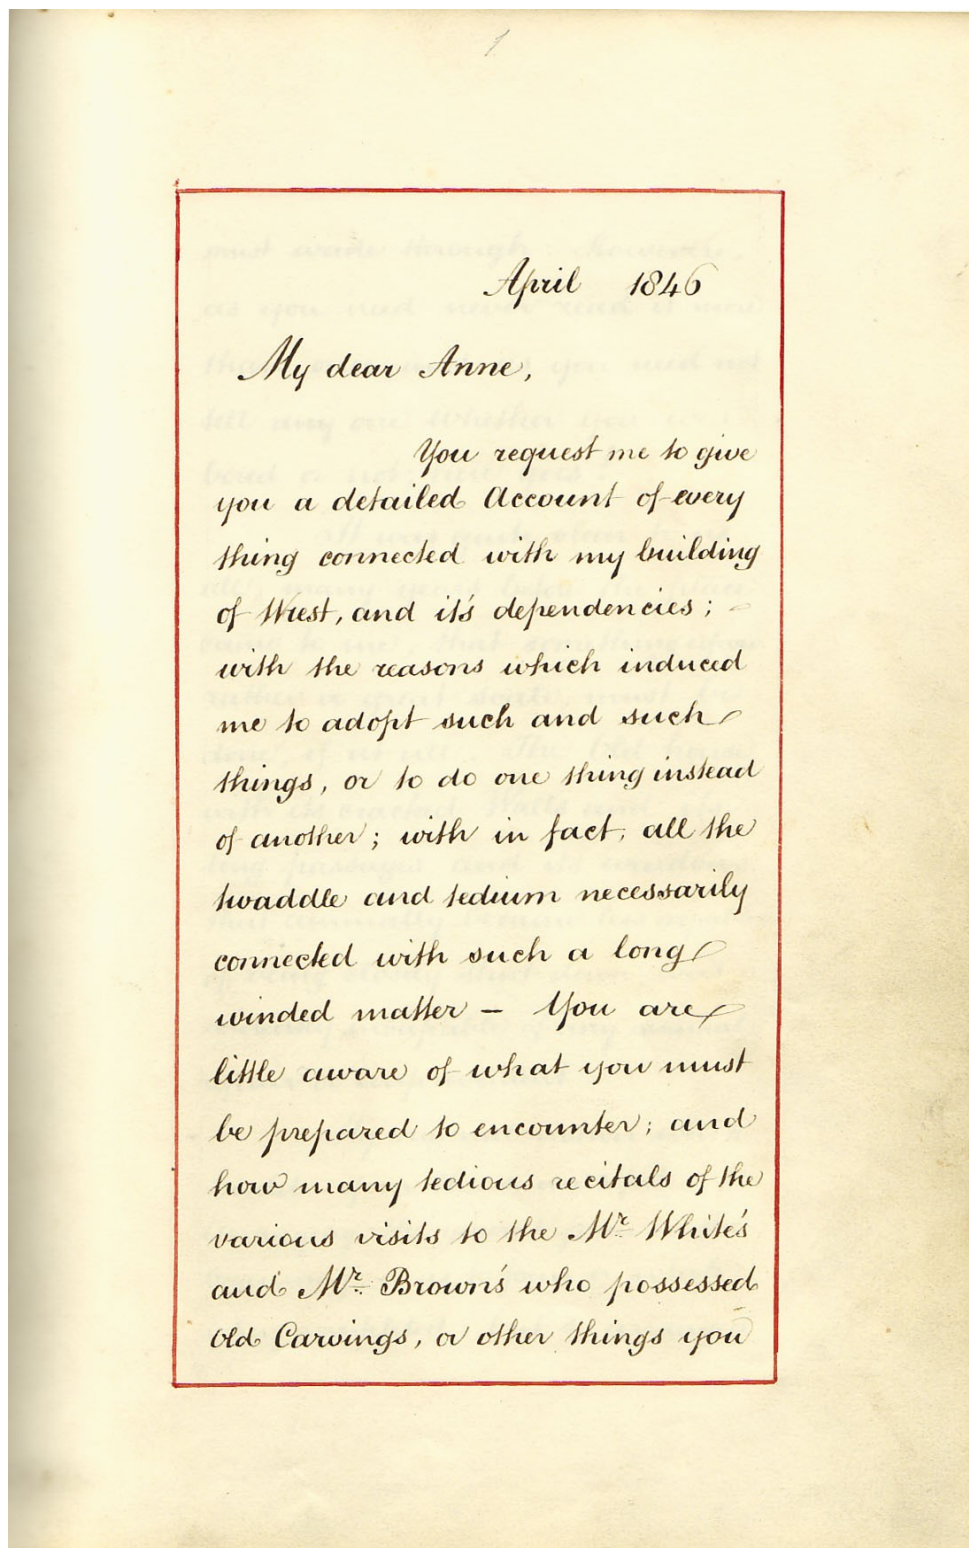 1
April 1846
My dear Anne,
You request me to give
you a detailed Account of every
thing connected with my building
of Wrest, and it's dependencies;
with the reasons which induced
me to adopt such and such
things, or to do one thing instead
of another; with in fact, all the
twaddle and tedium necessarily
connected with such a long
winded matter — You are
little aware of what you must
be prepared to encounter; and
how many tedious recitals of the
various visits to the Mr. White's
and Mr. Brown's who possessed
Old Carvings, or other things you